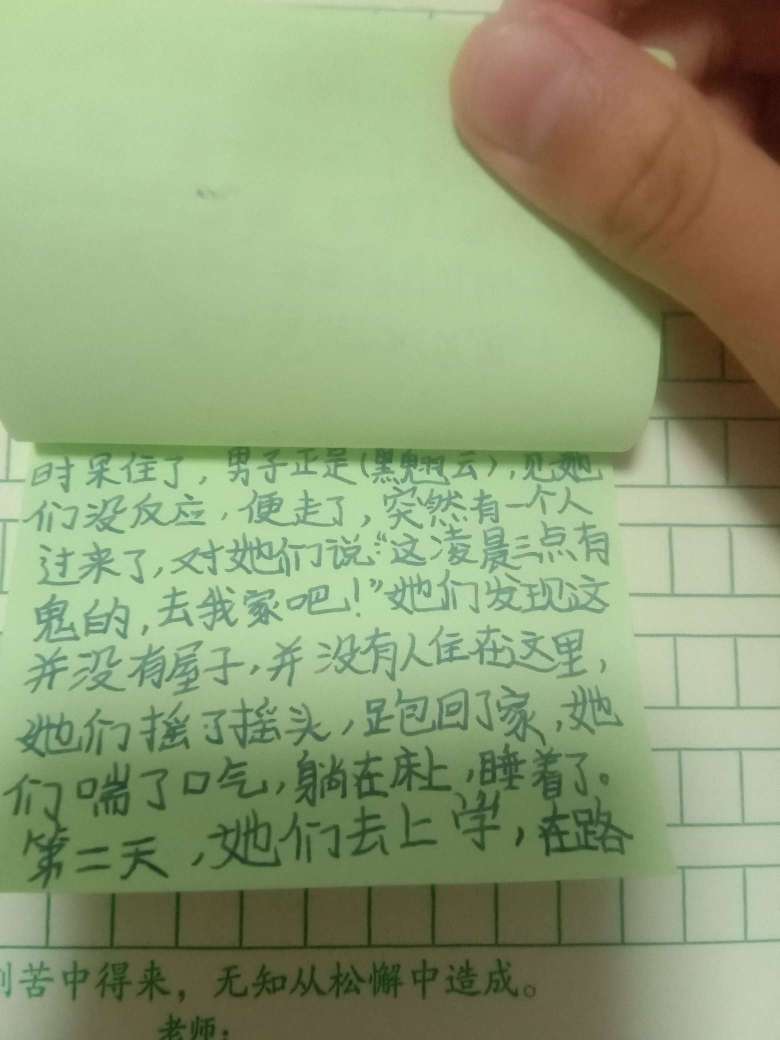 时呆住了，男子正是(黑翘云)，见她
们没反应，便走了，突然有一个人
过来了，对她们说“这凌晨三点有
鬼的，去我家吧！”她们发现这
并没有屋子，并没有人住在这里，
她们摇了摇头，跑回了家，她
们喘了口气，躺在床上，睡着了。
第二天，她们去上学，在路
苦中得来，无知从松懈中造成。
老师：